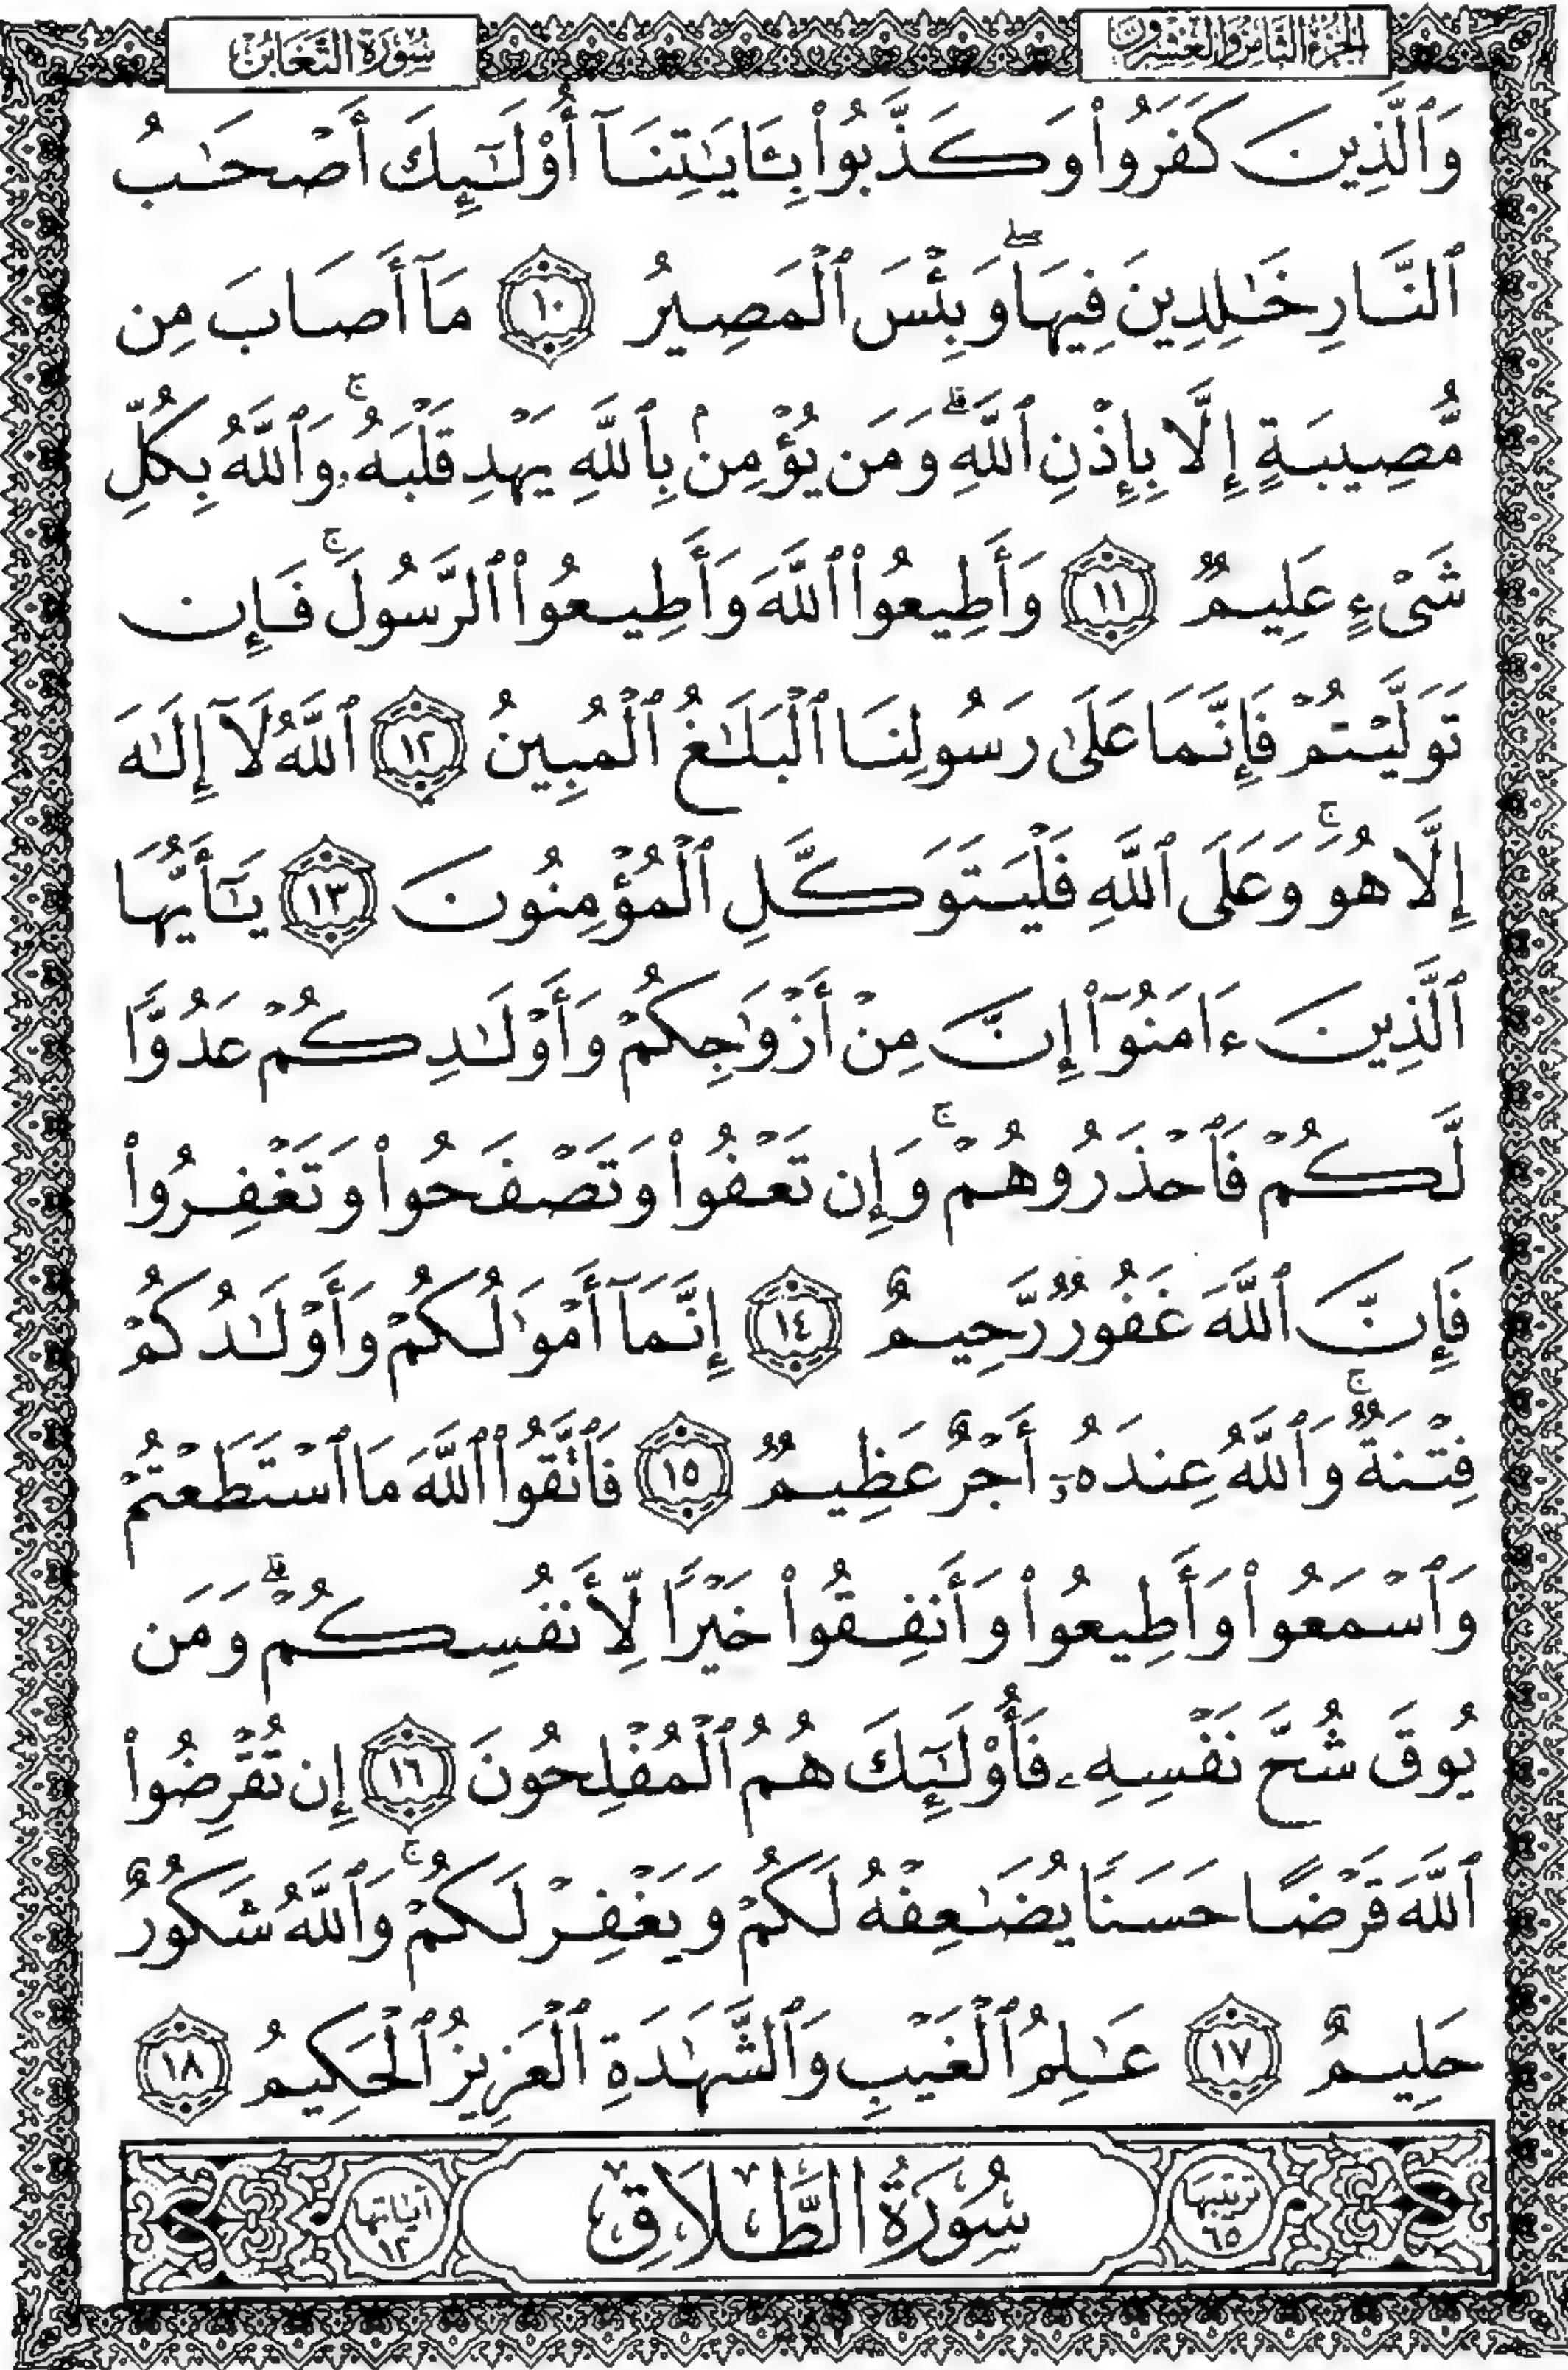 الجزء الثامن والعشرون
سُورَةُ التَّغَابُنِ
وَٱلَّذِينَ كَفَرُوا۟ وَكَذَّبُوا۟ بِـَٔايَـٰتِنَآ أُو۟لَـٰٓئِكَ أَصْحَـٰبُ
ٱلنَّارِ خَـٰلِدِينَ فِيهَا ۖ وَبِئْسَ ٱلْمَصِيرُ ١٠ مَآ أَصَابَ مِن
مُّصِيبَةٍ إِلَّا بِإِذْنِ ٱللَّهِ ۗ وَمَن يُؤْمِنۢ بِٱللَّهِ يَهْدِ قَلْبَهُۥ ۚ وَٱللَّهُ بِكُلِّ
شَىْءٍ عَلِيمٌ ١١ وَأَطِيعُوا۟ ٱللَّهَ وَأَطِيعُوا۟ ٱلرَّسُولَ ۚ فَإِن
تَوَلَّيْتُمْ فَإِنَّمَا عَلَىٰ رَسُولِنَا ٱلْبَلَـٰغُ ٱلْمُبِينُ ١٢ ٱللَّهُ لَآ إِلَـٰهَ
إِلَّا هُوَ ۚ وَعَلَى ٱللَّهِ فَلْيَتَوَكَّلِ ٱلْمُؤْمِنُونَ ١٣ يَـٰٓأَيُّهَا
ٱلَّذِينَ ءَامَنُوٓا۟ إِنَّ مِنْ أَزْوَٰجِكُمْ وَأَوْلَـٰدِكُمْ عَدُوًّا
لَّكُمْ فَٱحْذَرُوهُمْ ۚ وَإِن تَعْفُوا۟ وَتَصْفَحُوا۟ وَتَغْفِرُوا۟
فَإِنَّ ٱللَّهَ غَفُورٌ رَّحِيمٌ ١٤ إِنَّمَآ أَمْوَٰلُكُمْ وَأَوْلَـٰدُكُمْ
فِتْنَةٌ ۚ وَٱللَّهُ عِندَهُۥٓ أَجْرٌ عَظِيمٌ ١٥ فَٱتَّقُوا۟ ٱللَّهَ مَا ٱسْتَطَعْتُمْ
وَٱسْمَعُوا۟ وَأَطِيعُوا۟ وَأَنفِقُوا۟ خَيْرًا لِّأَنفُسِكُمْ ۗ وَمَن
يُوقَ شُحَّ نَفْسِهِۦ فَأُو۟لَـٰٓئِكَ هُمُ ٱلْمُفْلِحُونَ ١٦ إِن تُقْرِضُوا۟
ٱللَّهَ قَرْضًا حَسَنًا يُضَـٰعِفْهُ لَكُمْ وَيَغْفِرْ لَكُمْ ۚ وَٱللَّهُ شَكُورٌ
حَلِيمٌ ١٧ عَـٰلِمُ ٱلْغَيْبِ وَٱلشَّهَـٰدَةِ ٱلْعَزِيزُ ٱلْحَكِيمُ ١٨
ترتيبها ٦٥ سُورَةُ الطَّلَاقِ آياتها ١٢